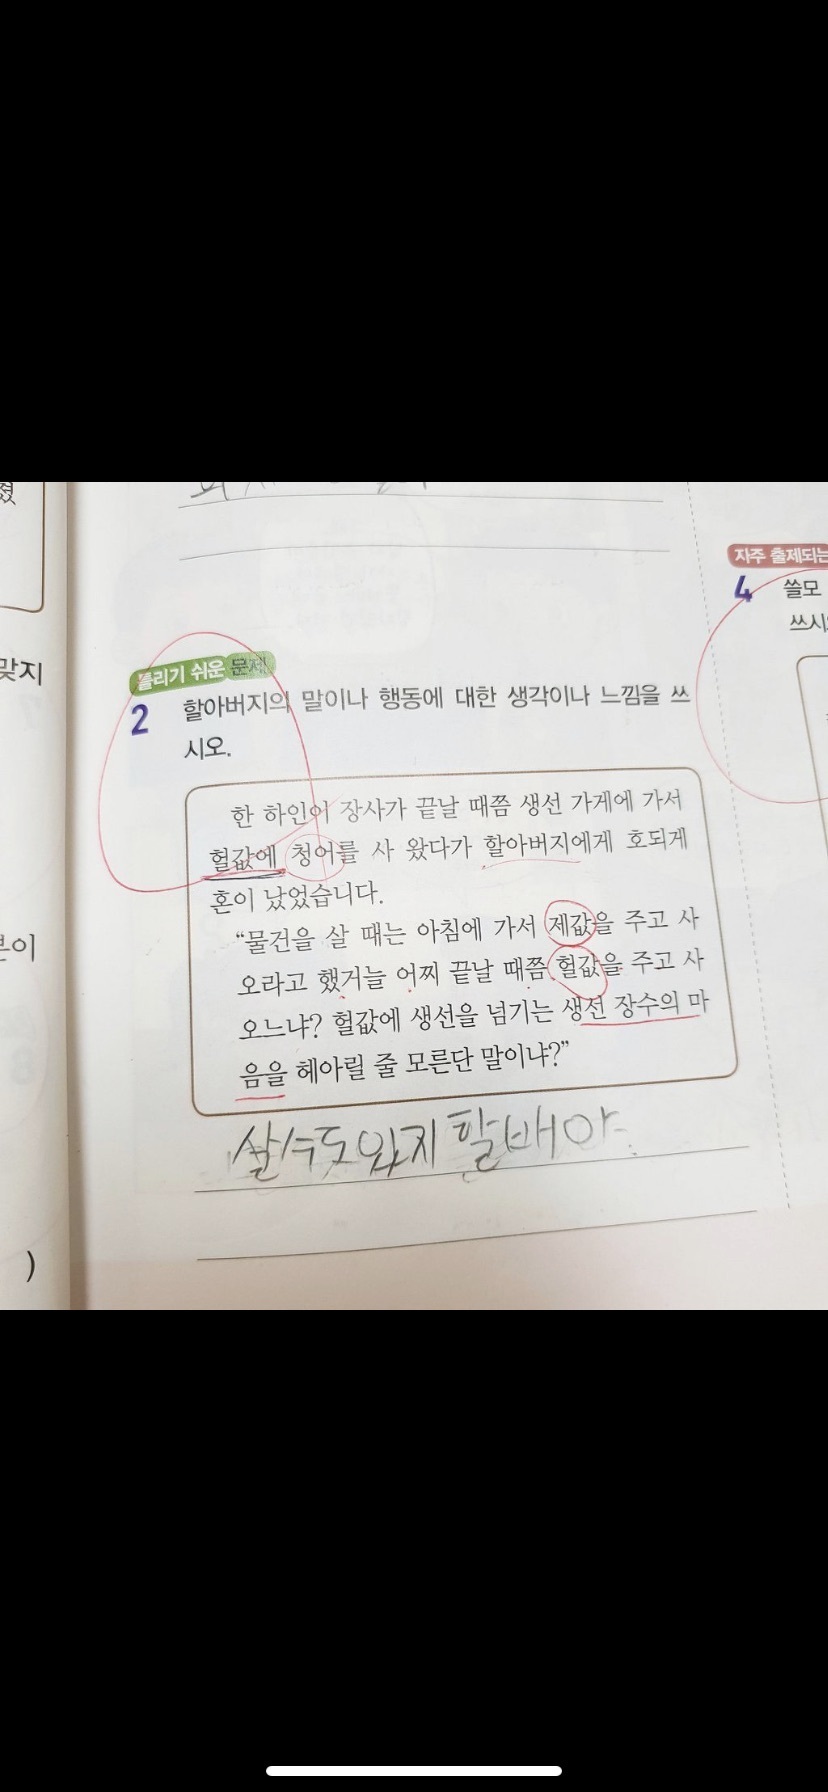 졌
맞지
본이
)
틀리기 쉬운 문제
2 할아버지의 말이나 행동에 대한 생각이나 느낌을 쓰
시오.
한 하인이 장사가 끝날 때쯤 생선 가게에 가서
헐값에 청어를 사 왔다가 할아버지에게 호되게
혼이 났었습니다.
“물건을 살 때는 아침에 가서 제값을 주고 사
오라고 했거늘 어찌 끝날 때쯤 헐값을 주고 사
오느냐? 헐값에 생선을 넘기는 생선 장수의 마
음을 헤아릴 줄 모른단 말이냐?”
살수도 있지 할배야.
자주 출제되는
4 쓸모
쓰시